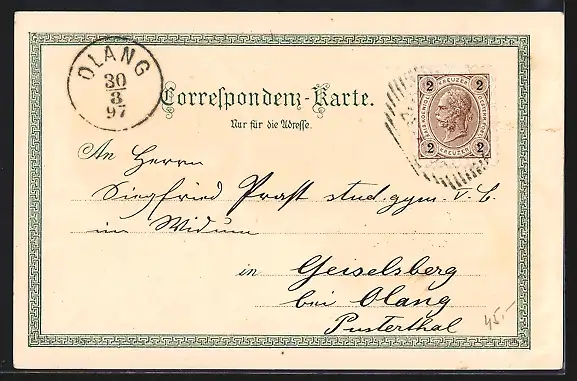 OLANG
30
8
97
Correspondenz-Karte.
Nur für die Adresse.
2 KREUZER 2
2 KREUZER 2
An Herrn
Siegfried Prast stud. gym. V. C.
im Widum
in Geiselsberg
bei Olang
Pusterthal
45,-